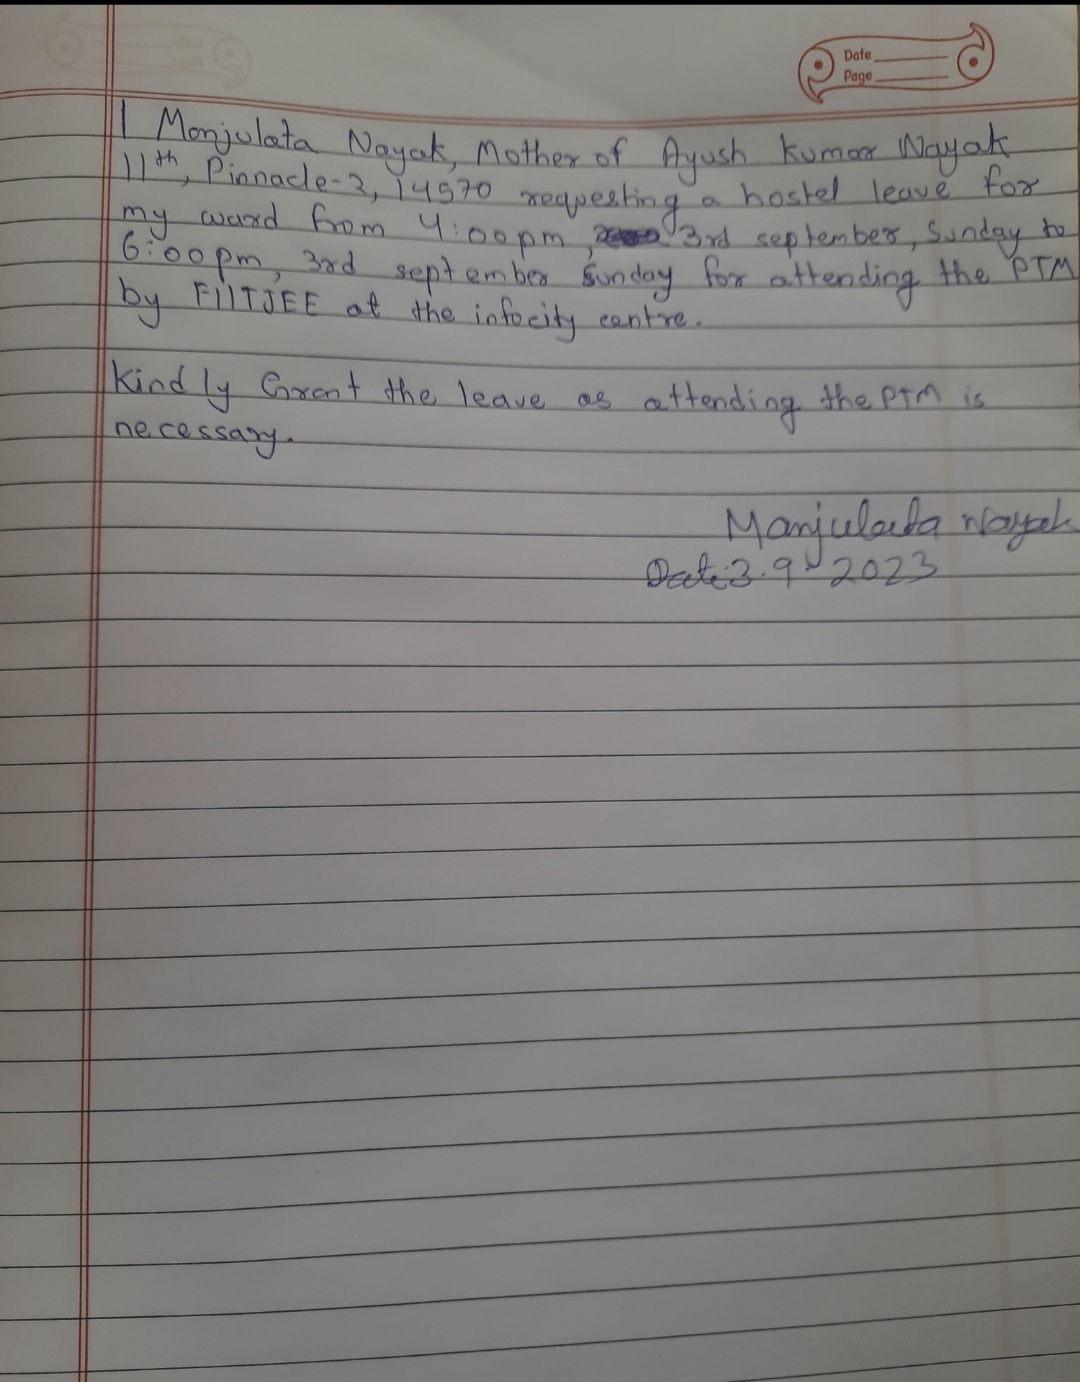 Date
Page
I Manjulata Nayak, Mother of Ayush Kumar Nayak
11th, Pinnacle-2, 14570 requesting a hostel leave for
my ward from 4:00pm, 3rd september, Sunday to
6:00pm, 3rd september Sunday for attending the PTM
by FIITJEE at the infocity centre.
Kindly Grant the leave as attending the PTM is
necessary.
Manjulata Nayak
Date: 3.9.2023